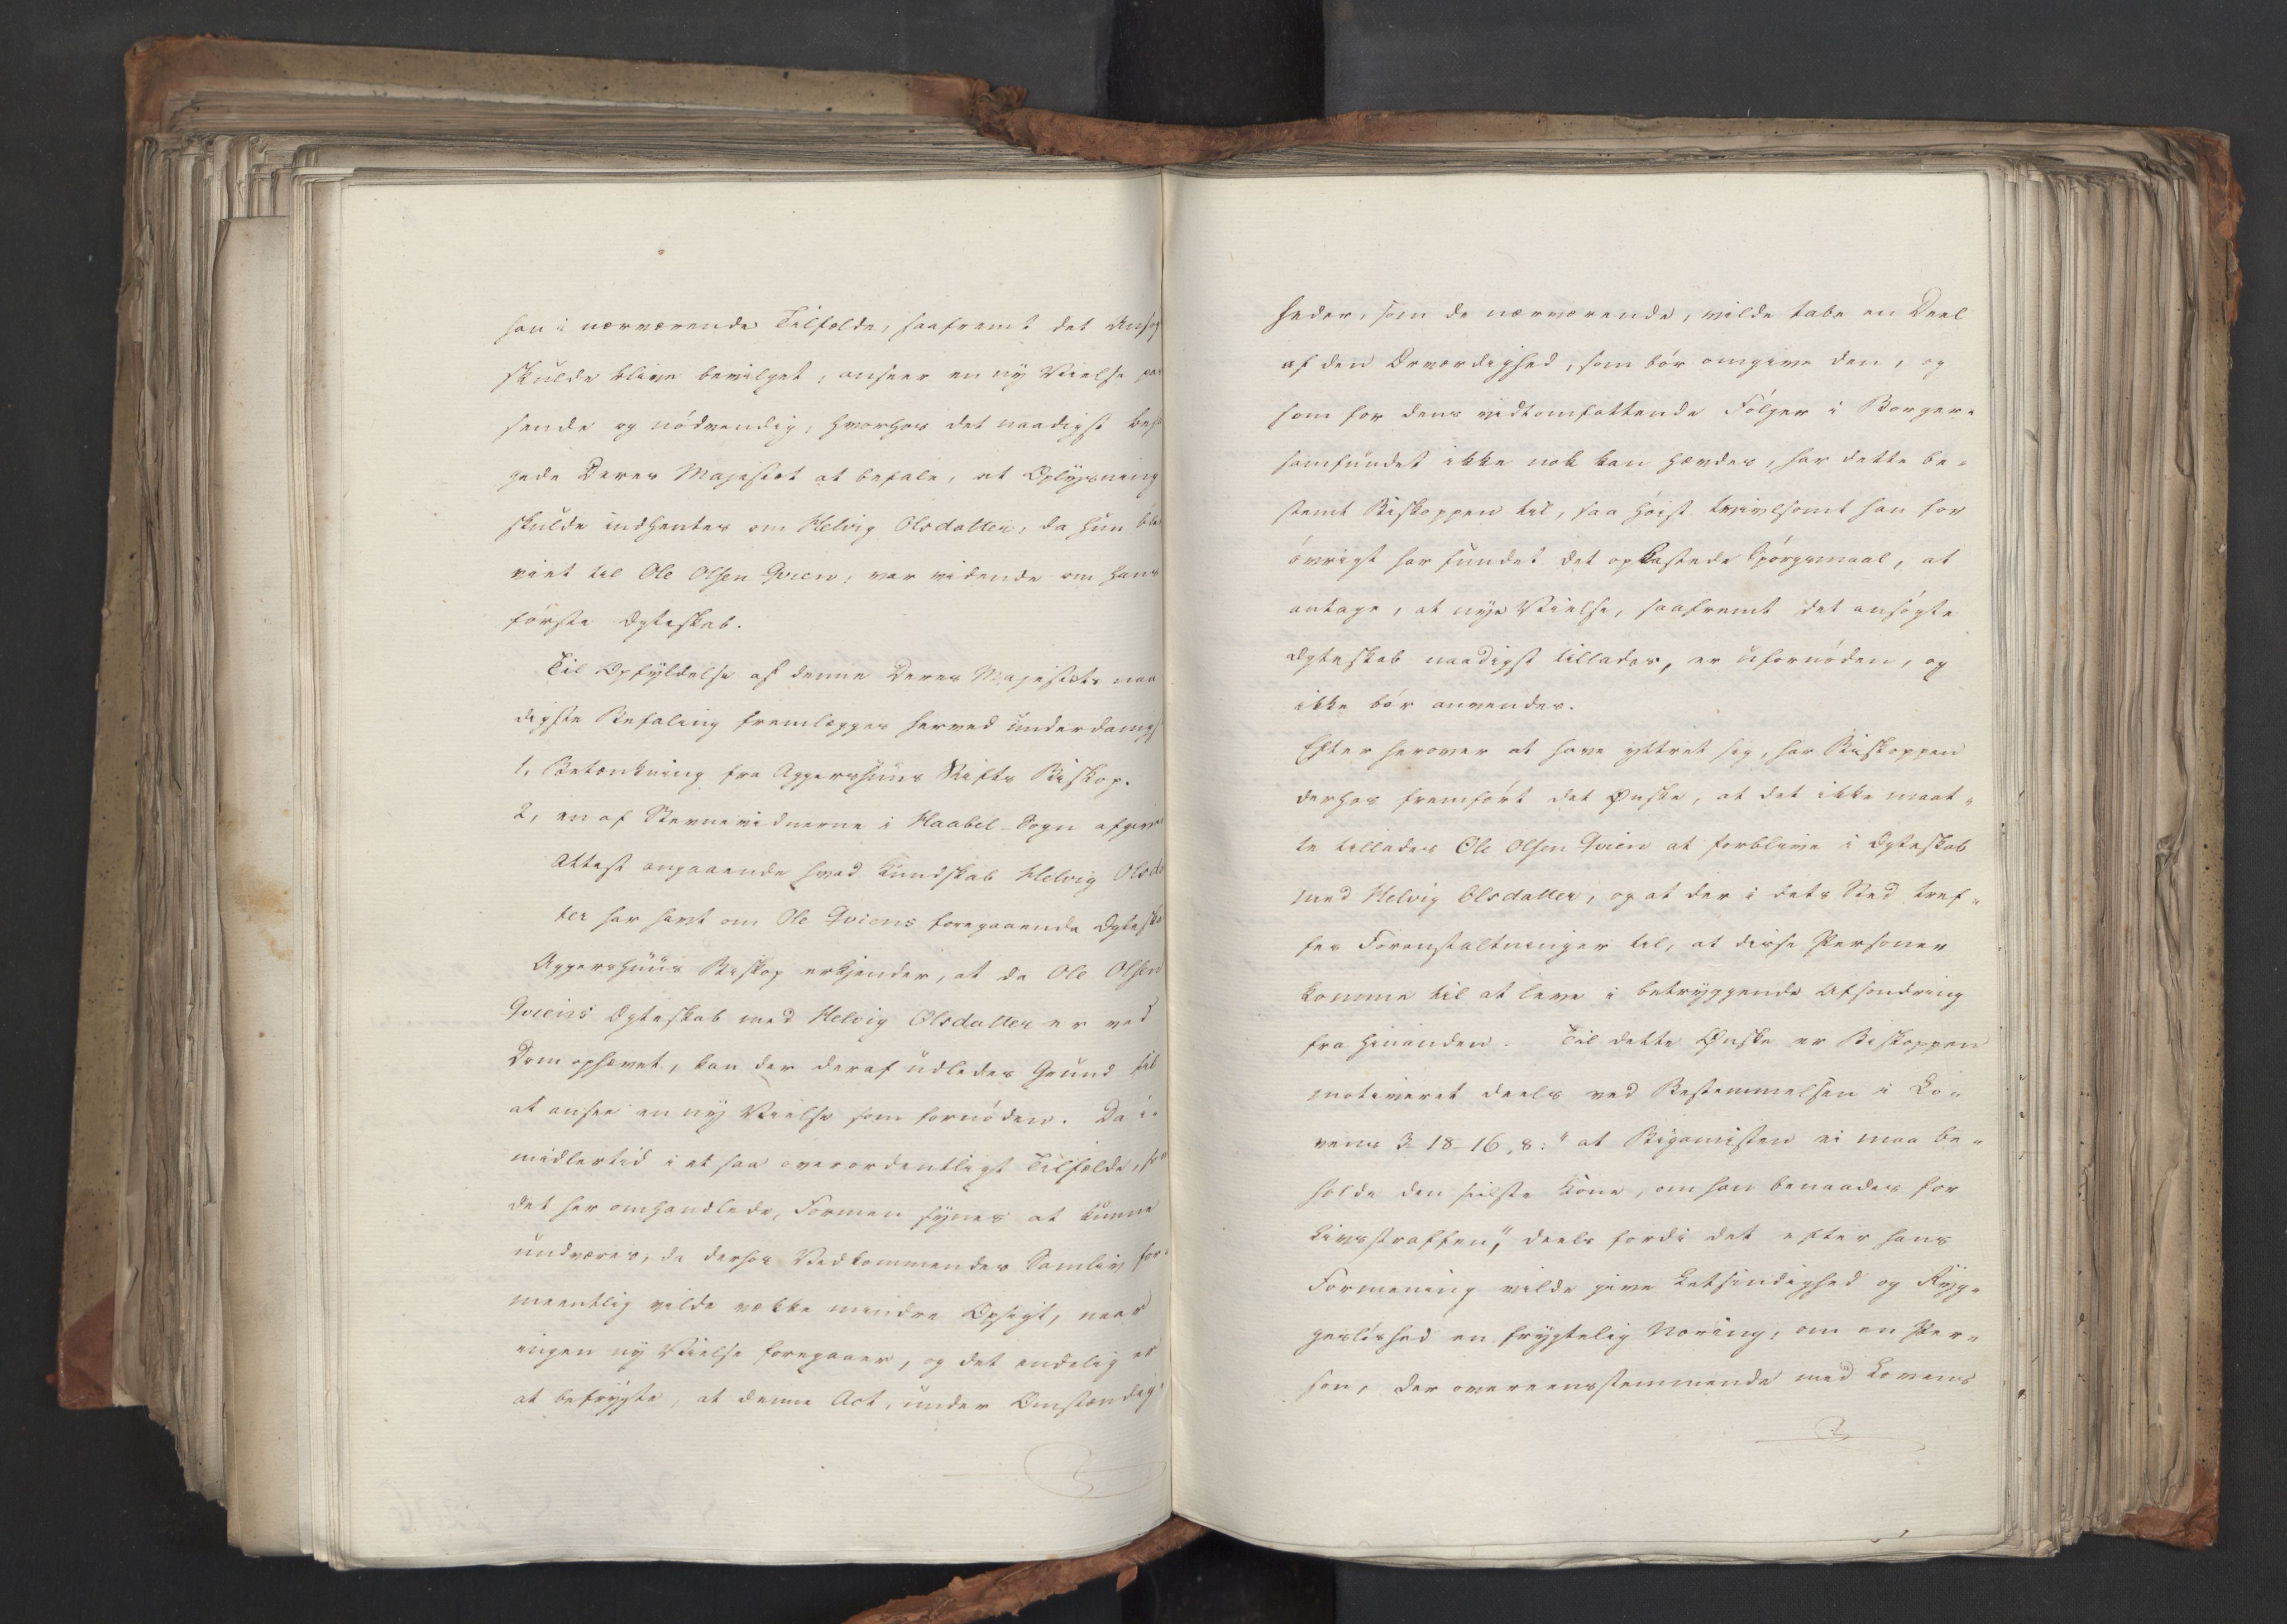 han i nærværende Tilfælde, saafremt det Ansøg
skulde blive bevilget, anseer en ny Vielse pas
sende og nödvendig, hvorhos det naadigst beha
gede Deres Majestæt at befale, at Oplysning
skulde indhentes om Helvig Olsdatter, da hun blev
viet til Ole Olsen Qvien, var vidende om hans
förste Ægteskab.
Til Opfyldelse af denne Deres Majestæts naa
digste Befaling fremlægges herved underdanigst
1, Betænkning fra Aggershuus Stifts Biskop.
2, en af Stevnevidnerne i Haabel-Sogn afgiven
Attest angaaende hvad Kundskab Helvig Olsdat
ter har havt om Ole Qviens foregaaende Ægteskab
Aggershuus Biskop erkjender, at da Ole Olsen
Qviens Ægteskab med Helvig Olsdatter er ved
Dom ophævet, kan der deraf udledes Grund til
at ansee en ny Vielse som fornöden. Da i-
midlertid i et saa overordentligt Tilfælde, som
det her omhandlede, Formen synes at kunne
undværes, da derhos Vedkommendes Samliv for-
meentlig vilde vække mindre Opsigt, naar
ingen ny Vielse foregaaer, og det endelig er
at befrygte, at denne Act, under Omstændig-
heder, som de nærværende, vilde tabe en Deel
af den Ærværdighed, som bör omgive den, og
som for dens vidtomfattende Fölger i Borger-
samfundet ikke nok kan hævdes, har dette be-
stemt Biskoppen til, saa höist tvivlsomt han for
övrigt har fundet det opkastede Spörgsmaal, at
antage, at nye Vielse, saafremt det ansögte
Ægteskab naadigst tillades, er ufornöden, og
ikke bör anvendes.
Efter herover at have yttret sig, har Biskoppen
derhos fremfört det Ønske, at det ikke maat-
te tillades Ole Olsen Qvien at forblive i Ægteskab
med Helvig Olsdatter, og at der i dets Sted træf-
fes Foranstaltninger til, at disse Personer
komme til at leve i betryggende Afsondring
fra hinanden. Til dette Ønske er Biskoppen
motiveret deels ved Bestemmelsen i Lo-
vens 3-18-16, 8: "at Bigamisten ei maa be-
holde den sidste Kone, om han benaades for
Livsstraffen", deels fordi det efter hans
Formening vilde give Letsindighed og Ryg-
geslöshed en frygtelig Næring, om en Per-
son, der overeensstemmende med Lovens